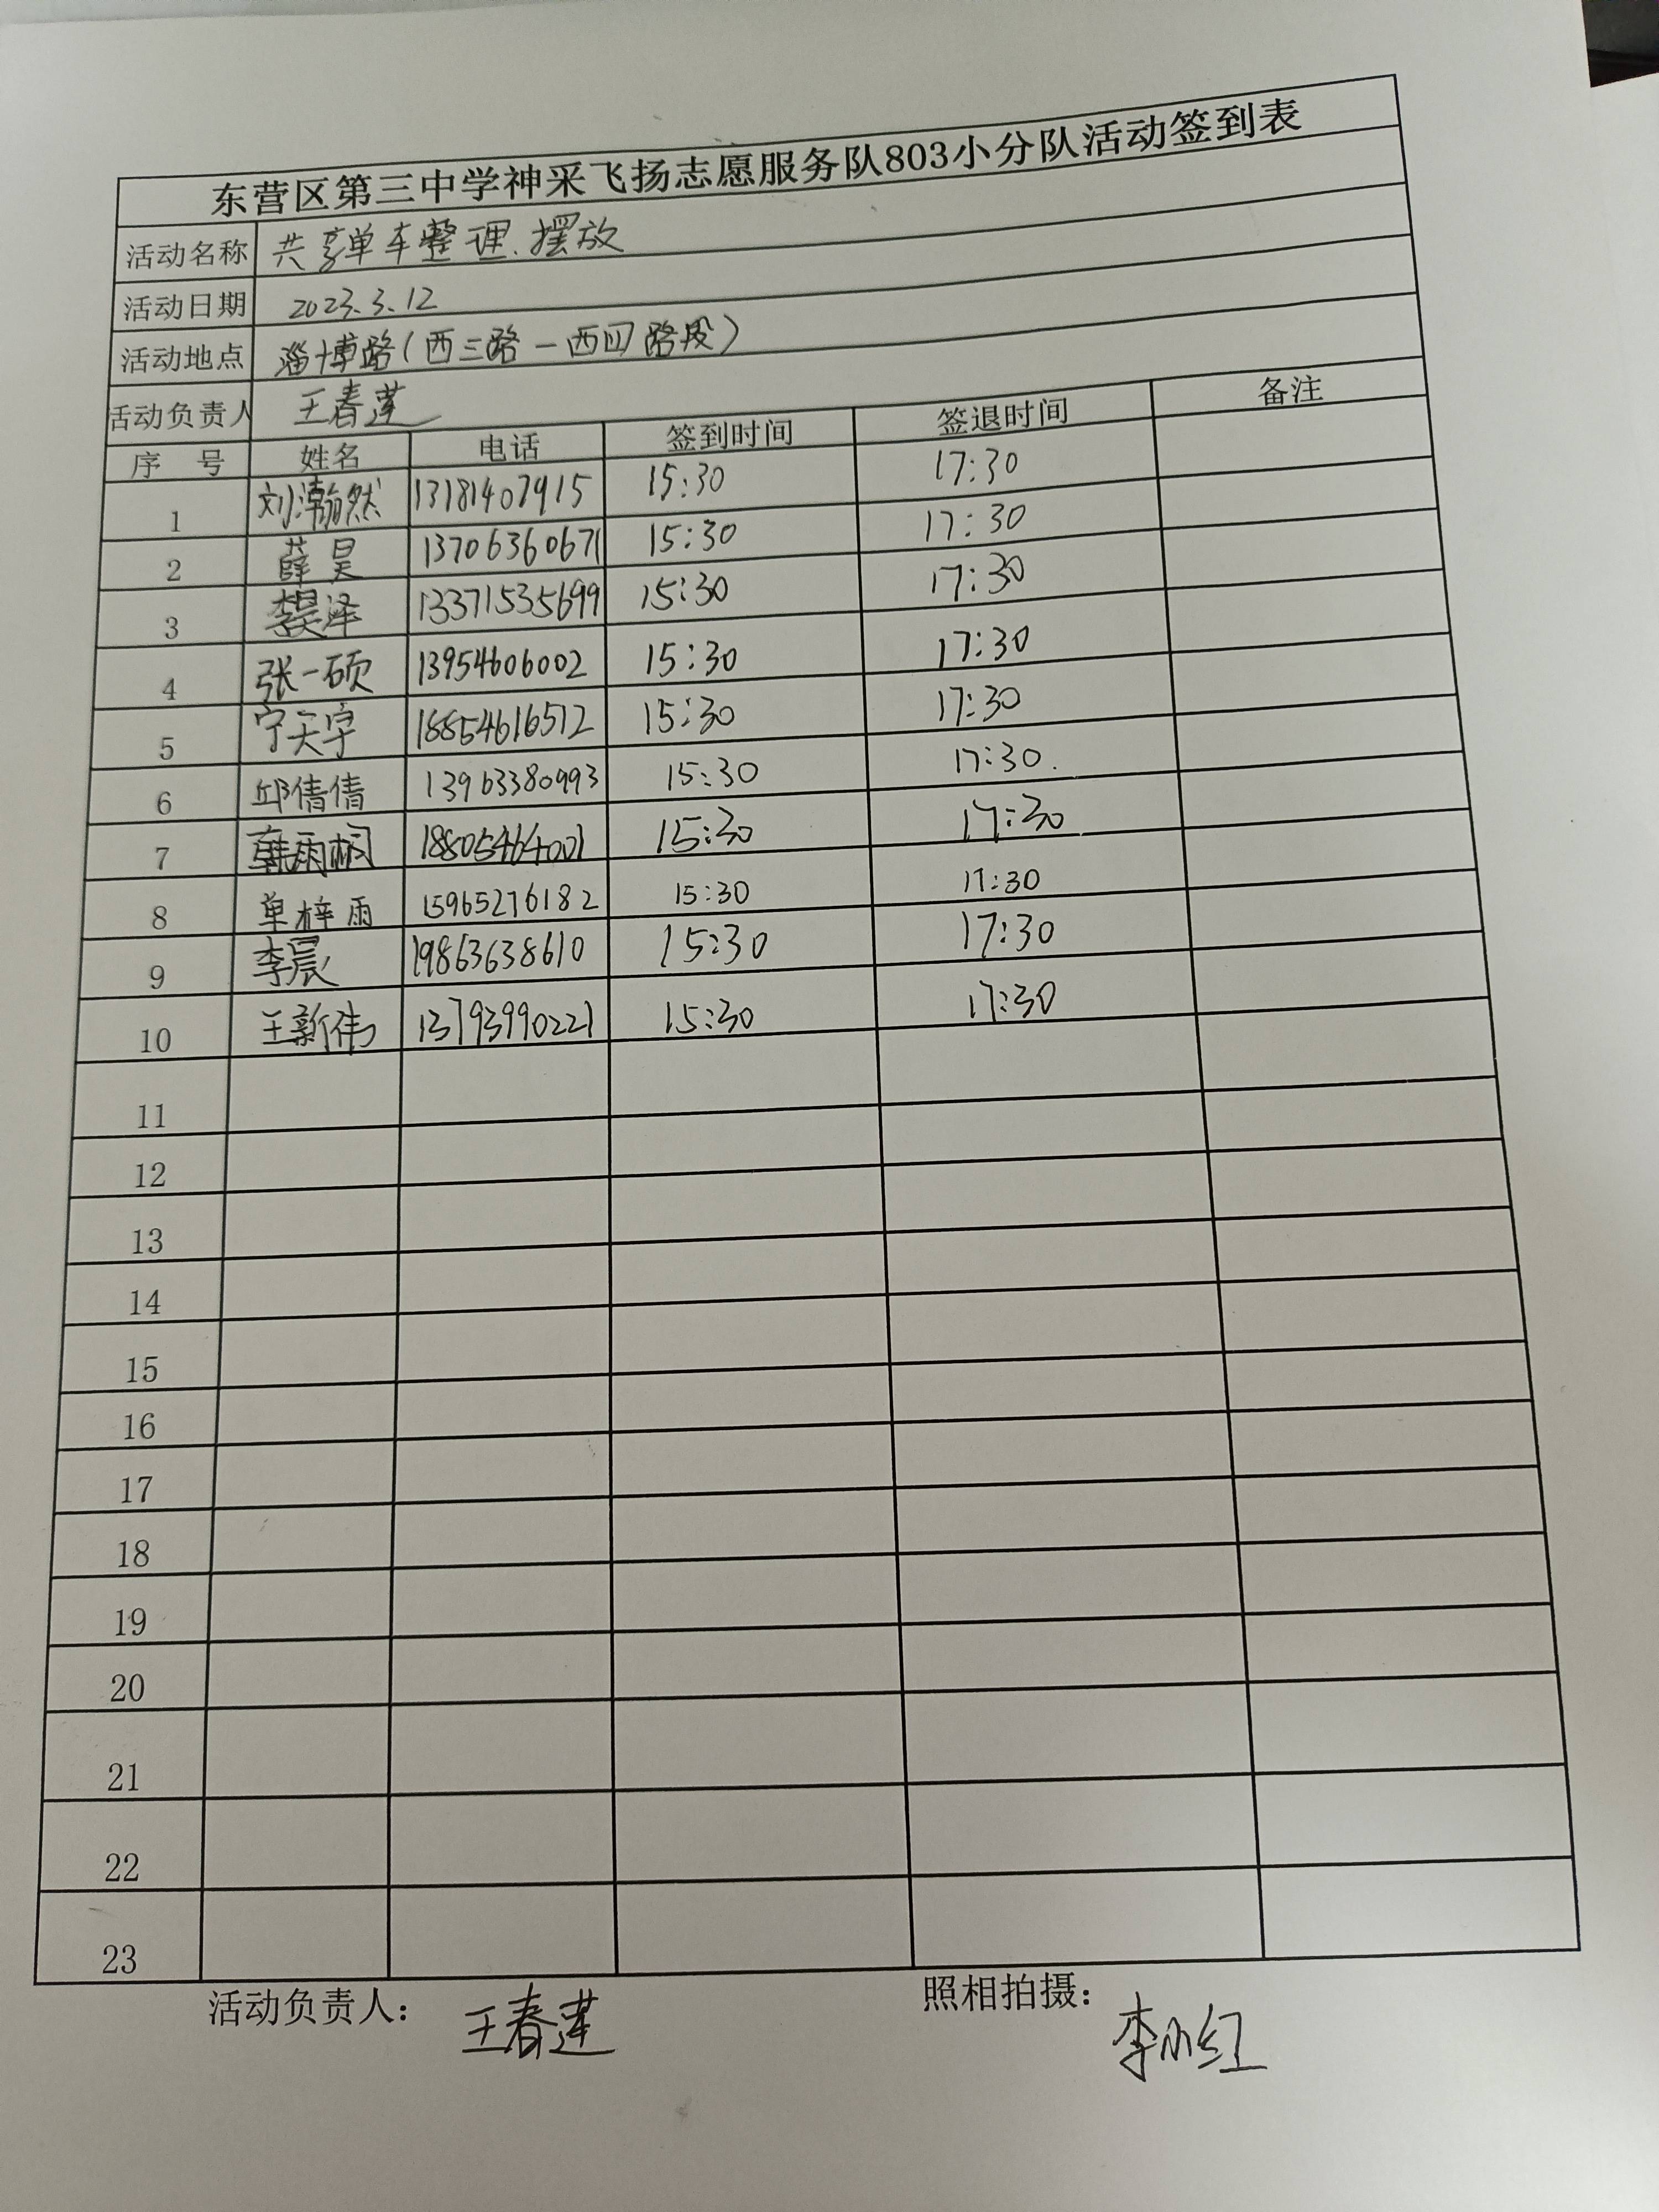 东营区第三中学神采飞扬志愿服务队803小分队活动签到表
活动名称 共享单车整理、摆放
活动日期 2023.3.12
活动地点 淄博路(西三路一西四路段)
活动负责人 王春莲
序号 姓名 电话 签到时间 签退时间 备注
1 刘瀚然 13181407915 15:30 17:30
2 薛昊 13706360671 15:30 17:30
3 李昊泽 13371535699 15:30 17:30
4 张一硕 13954606002 15:30 17:30
5 宁天宇 18854616512 15:30 17:30
6 邱倩倩 13963380993 15:30 17:30.
7 韩雨桐 18805464001 15:30 17:30
8 单梓雨 15965276182 15:30 17:30
9 李晨 19863638610 15:30 17:30
10 王新伟 13793990221 15:30 17:30
11
12
13
14
15
16
17
18
19
20
21
22
23
活动负责人: 王春莲 照相拍摄: 李小红